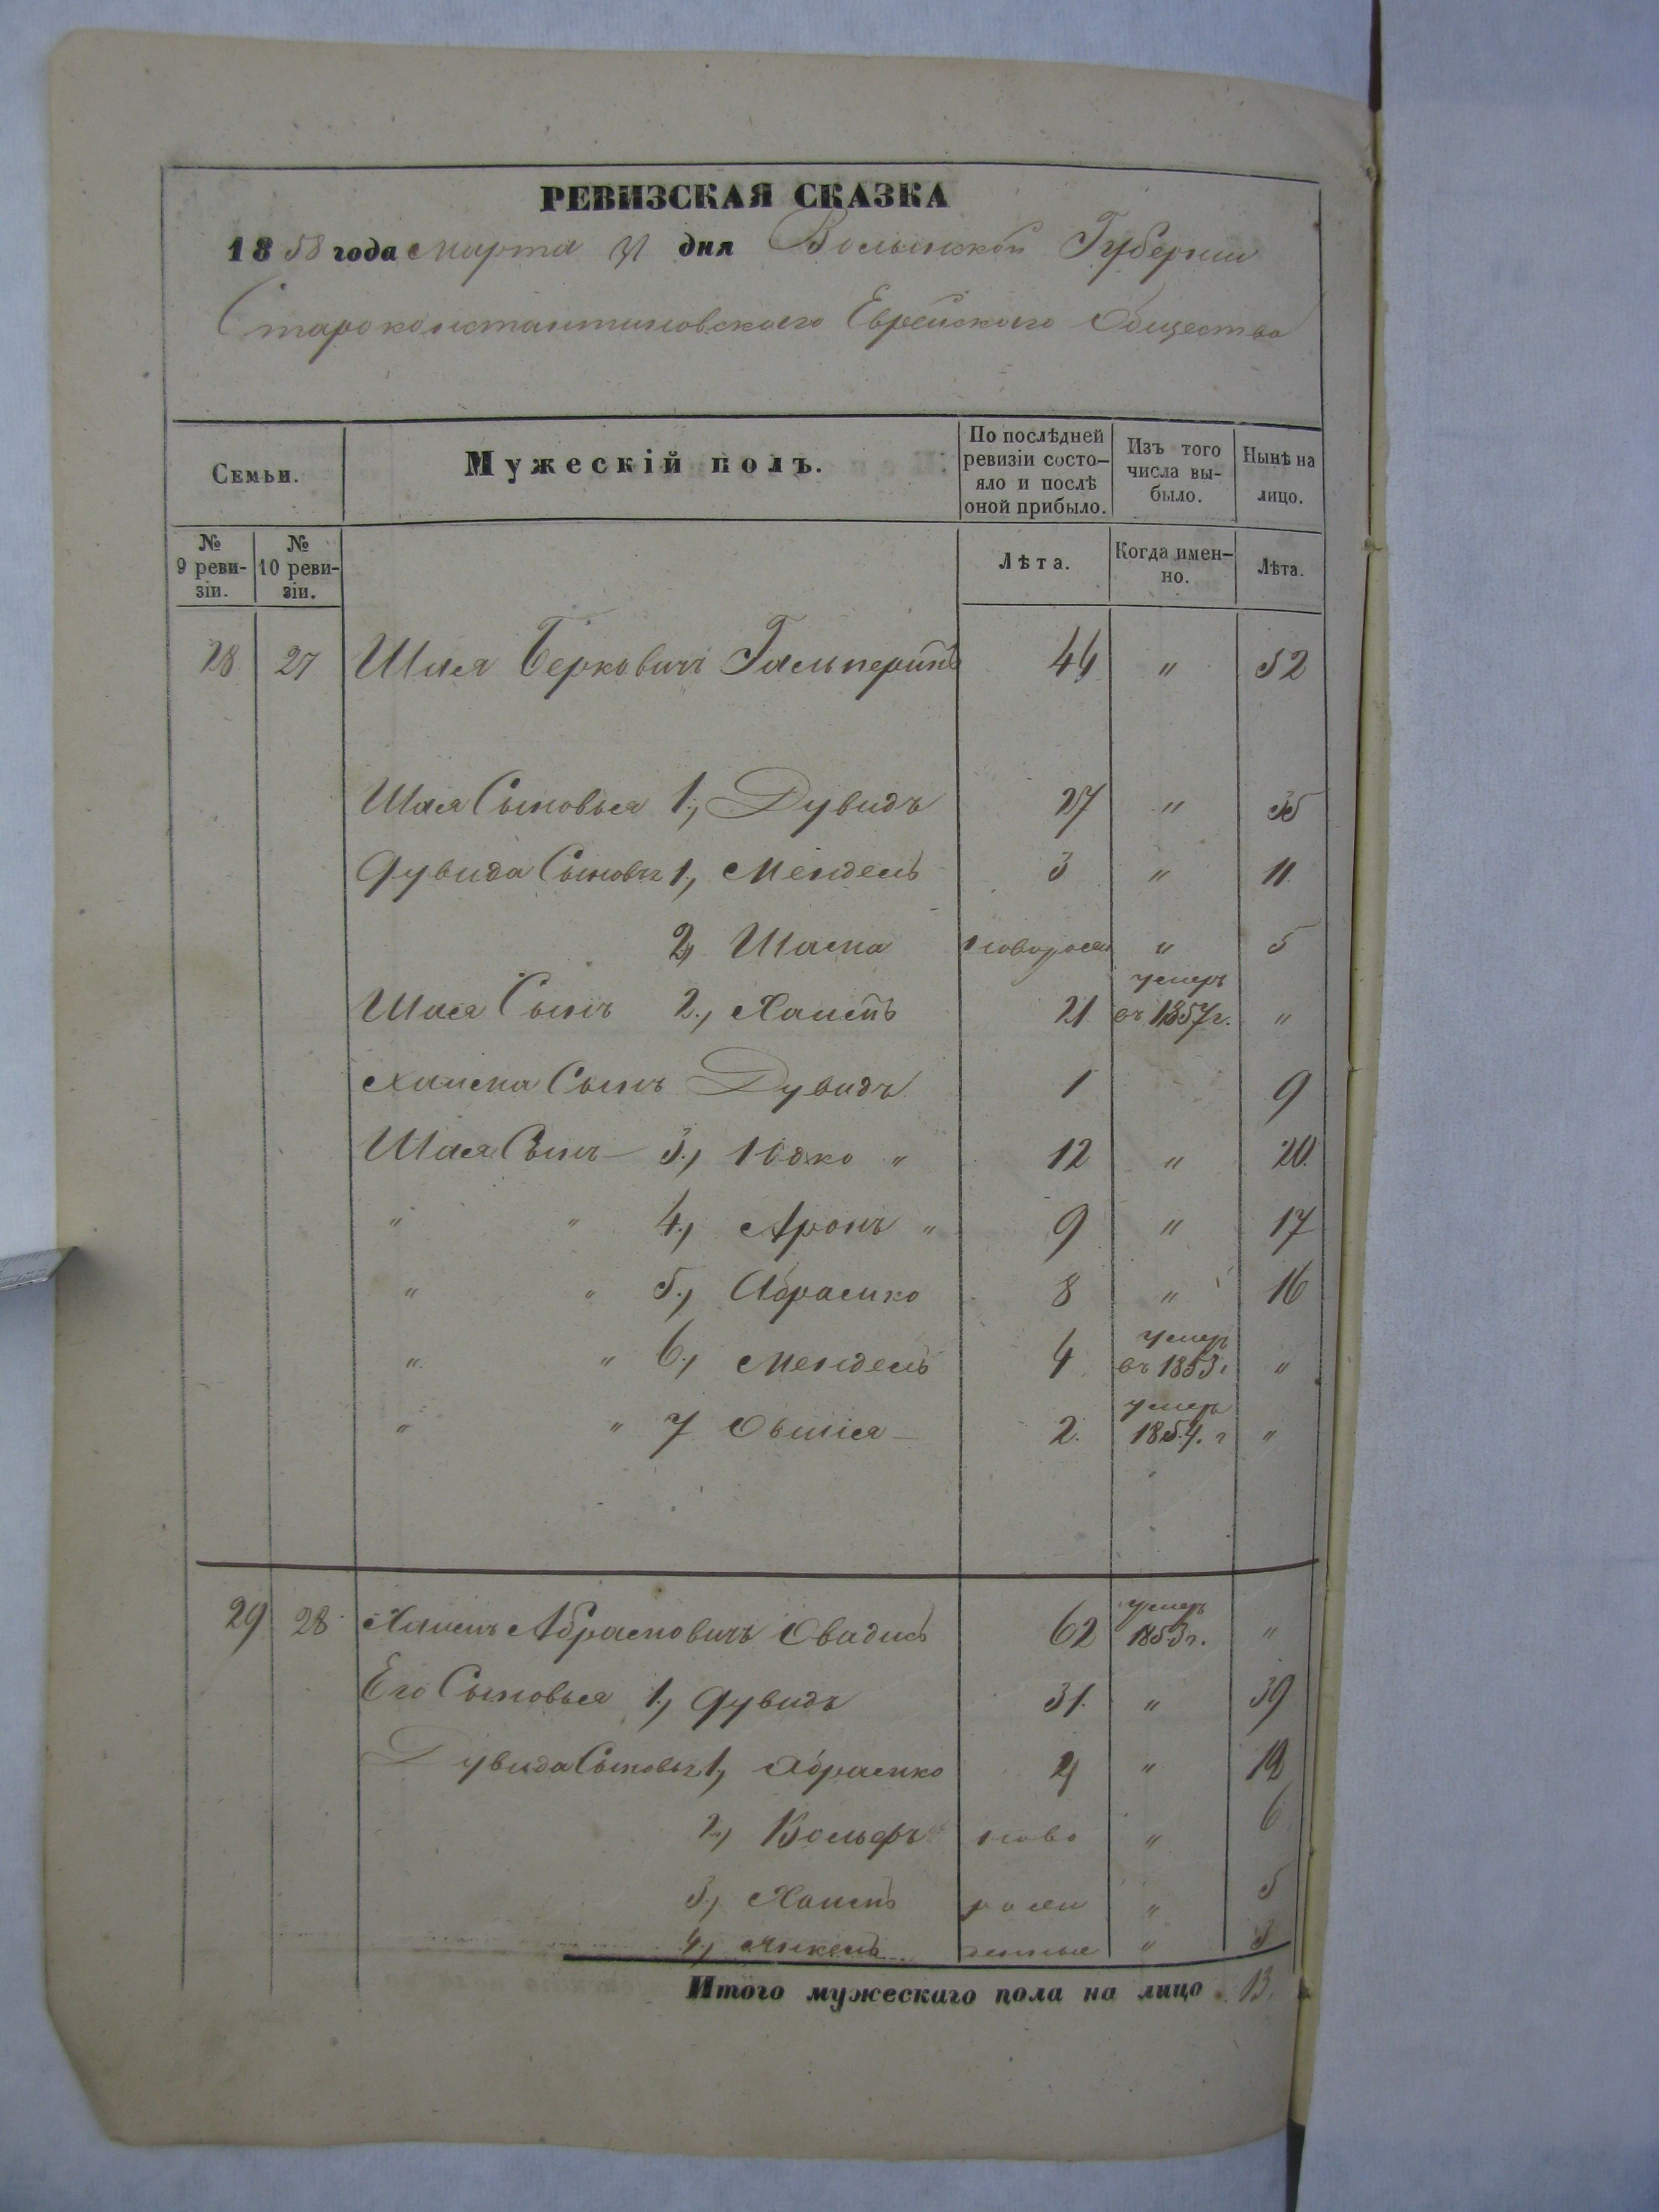 РЕВИЗСКАЯ СКАЗКА
1858 года Марта 31 дня Волынской Губернии
Староконстантиновскаго Еврейскаго Общества
Семьи. Мужескій полъ. По послѣдней ревизіи состо- яло и послѣ оной прибыло. Изъ того числа вы- было. Нынѣ на лицо.
№ 9 реви- зіи. № 10 реви- зіи. Лѣта. Когда имен- но. Лѣта.
28 27 Шая Берковичъ Гальперинъ 44 " 52
Шая Сыновья 1., Дувидъ 27 " 35
Дувида Сыновья 1., Мендель 3 " 11
2, " 5
Шая Сынъ 2., Хаимъ 21 умеръ въ 1857 г. "
Хаима Сынъ Дувидъ 1 9
Шая Сынъ 3., Юдко " 12 " 20.
" " 4., Аронъ " 9 " 17
" " 5., Абрамко 8 " 16
" " 6., Мендель 4 умеръ въ 1853 г "
" " 7 Овшія 2. умеръ 1854. г "
29 28 Хаимъ Абрамовичъ Овадисъ 62 умеръ 1853 г. "
Его Сыновья 1., Дувидъ 31. " 39
Дувида Сыновья 1., Абрамко 4 " 12
2., Вольфъ ново " 6
3., Хаимъ рож " 5
4., Янкель денные " 3
Итого мужескаго пола на лицо 13.